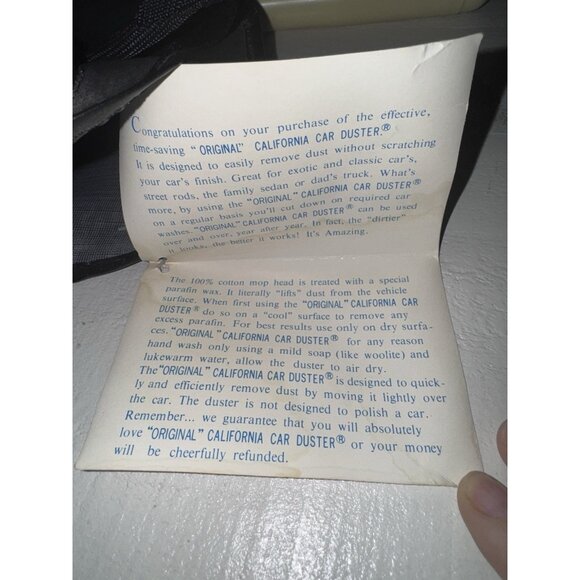 Congratulations on your purchase of the effective,
time-saving "ORIGINAL" CALIFORNIA CAR DUSTER.®
It is designed to easily remove dust without scratching
your car's finish. Great for exotic and classic car's,
street rods, the family sedan or dad's truck. What's
more, by using the "ORIGINAL" CALIFORNIA CAR DUSTER®
on a regular basis you'll cut down on required car
washes. "ORIGINAL" CALIFORNIA CAR DUSTER® can be used
over and over, year after year. In fact, the "dirtier"
it looks, the better it works! It's Amazing.
The 100% cotton mop head is treated with a special
parafin wax. It literally "lifts" dust from the vehicle
surface. When first using the "ORIGINAL" CALIFORNIA CAR
DUSTER® do so on a "cool" surface to remove any
excess parafin. For best results use only on dry surfa-
ces. "ORIGINAL" CALIFORNIA CAR DUSTER® for any reason
hand wash only using a mild soap (like woolite) and
lukewarm water, allow the duster to air dry.
The "ORIGINAL" CALIFORNIA CAR DUSTER® is designed to quick-
ly and efficiently remove dust by moving it lightly over
the car. The duster is not designed to polish a car.
Remember... we guarantee that you will absolutely
love "ORIGINAL" CALIFORNIA CAR DUSTER® or your money
will be cheerfully refunded.